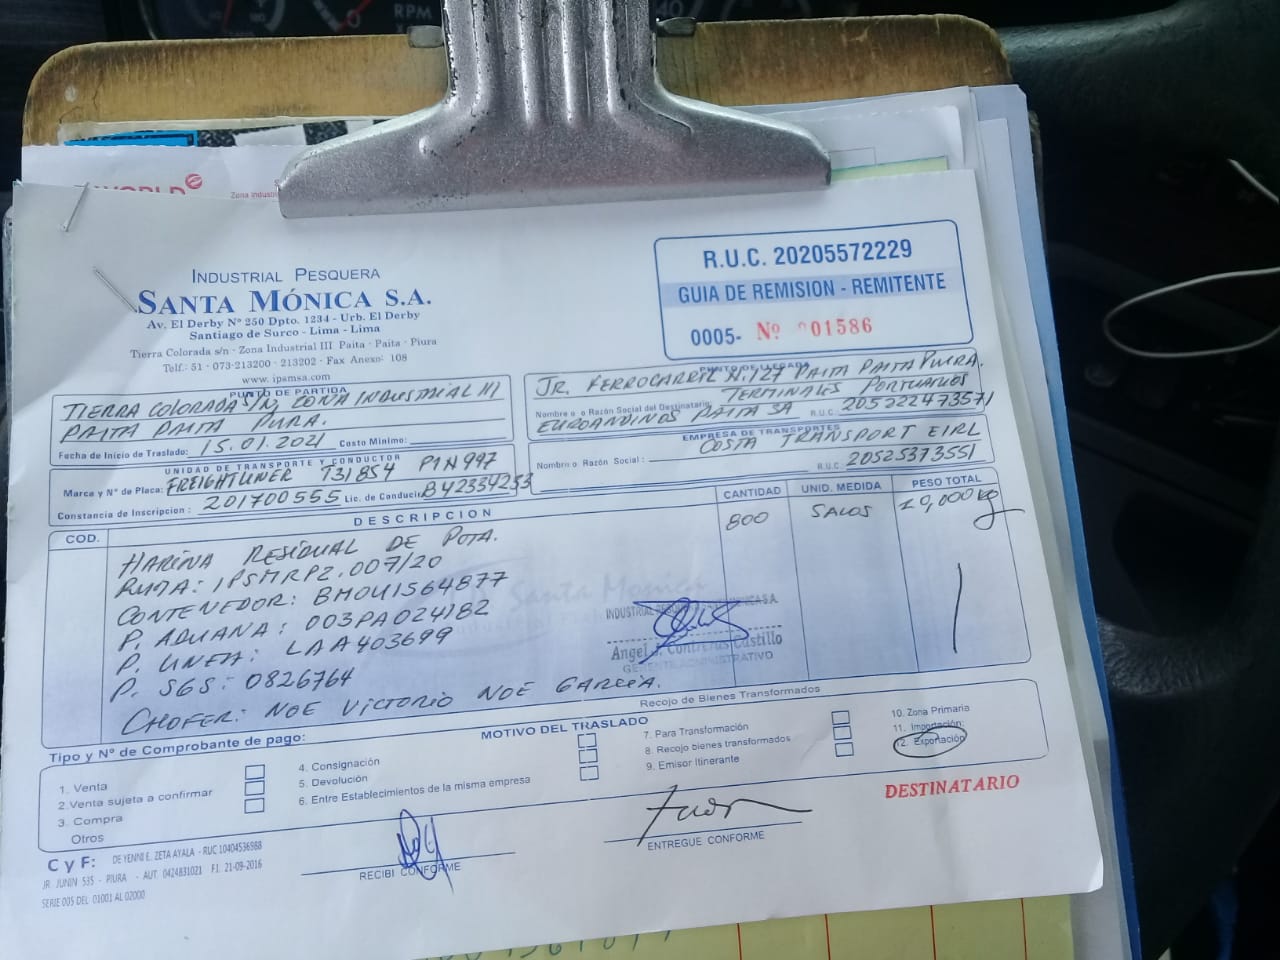 RPM
WORLD
Zona Indust
INDUSTRIAL PESQUERA
SANTA MÓNICA S.A.
Av. El Derby Nº 250 Dpto. 1234 - Urb. El Derby
Santiago de Surco - Lima - Lima
Tierra Colorada s/n - Zona Industrial III Paita - Paita - Piura
Telf.: 51 - 073-213200 - 213202 - Fax Anexo: 108
www.ipsmsa.com
R.U.C. 20205572229
GUIA DE REMISION - REMITENTE
0005- Nº 001586
PUNTO DE PARTIDA
TIERRA COLORADA S/N, ZONA INDUSTRIAL III
PAITA PAITA PIURA.
Fecha de Inicio de Traslado: 15.01.2021 Costo Mínimo:
PUNTO DE LLEGADA
JR. FERROCARRIL N.127 PAITA PAITA PIURA.
Nombre o Razón Social del Destinatario: TERMINALES PORTUARIOS
EUROANDINOS PAITA SA R.U.C. 205222473571
UNIDAD DE TRANSPORTE Y CONDUCTOR
Marca y Nº de Placa: FREIGHTLINER T3I854 P1N997
Constancia de Inscripcion: 201700555 Lic. de Conducir: B42334253
EMPRESA DE TRANSPORTES
Nombre o Razón Social: COSTA TRANSPORT EIRL
R.U.C. 20525373551
COD. DESCRIPCION CANTIDAD UNID. MEDIDA PESO TOTAL
HARINA RESIDUAL DE POTA. 800 SACOS
RUMA: IPSMRP2.007/20
CONTENEDOR: BMOU1564877
P. ADUANA: 003PA024182
P. LINEA: LAA403699
P. SGS: 0826764
CHOFER: NOE VICTORIO NOE GARCIA.
Santa Monica
Angel J. Contreras Castillo
GERENTE ADMINISTRATIVO
Tipo y Nº de Comprobante de pago:
MOTIVO DEL TRASLADO
Recojo de Bienes Transformados
1. Venta
2. Venta sujeta a confirmar
3. Compra
Otros
4. Consignación
5. Devolución
6. Entre Establecimientos de la misma empresa
7. Para Transformación
8. Recojo bienes transformados
9. Emisor Itinerante
10. Zona Primaria
11. Importación
12. Exportación
DESTINATARIO
C y F: DE YENNI E. ZETA AYALA - RUC 10404536988
JR. JUNIN 535 - PIURA - AUT. 0424831021 F.I. 21-09-2016
SERIE 005 DEL 01001 AL 02000
RECIBI CONFORME
ENTREGUE CONFORME